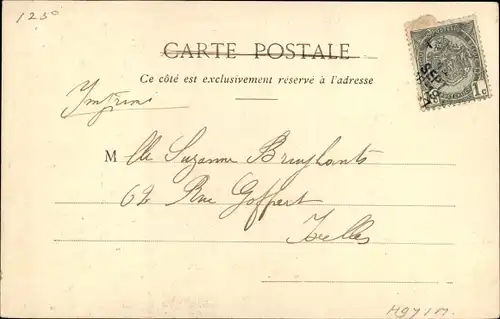 1250
CARTE POSTALE
Ce côté est exclusivement réservé à l'adresse
Imprimé
Mlle Suzanne Bruylants
62 Rue Goffart
Ixelles
1c